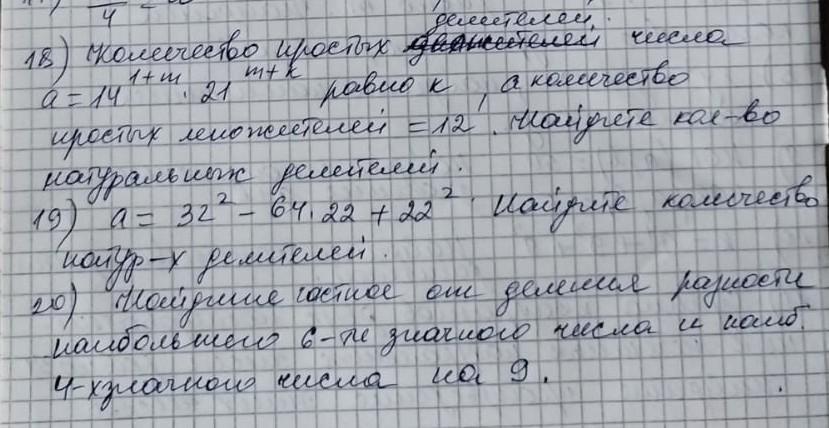 4
делителей.
18) Количество простых числа
a = 14^{1+m} · 21^{m+k} равно k, а количество
простых множителей = 12. Найдите кол-во
натуральных делителей.
19) a = 32² - 64·22 + 22² Найдите количество
натур-х делителей.
20) Найдите частное от деления разности
наибольшего 6-ти значного числа и наиб.
4-хзначного числа на 9.